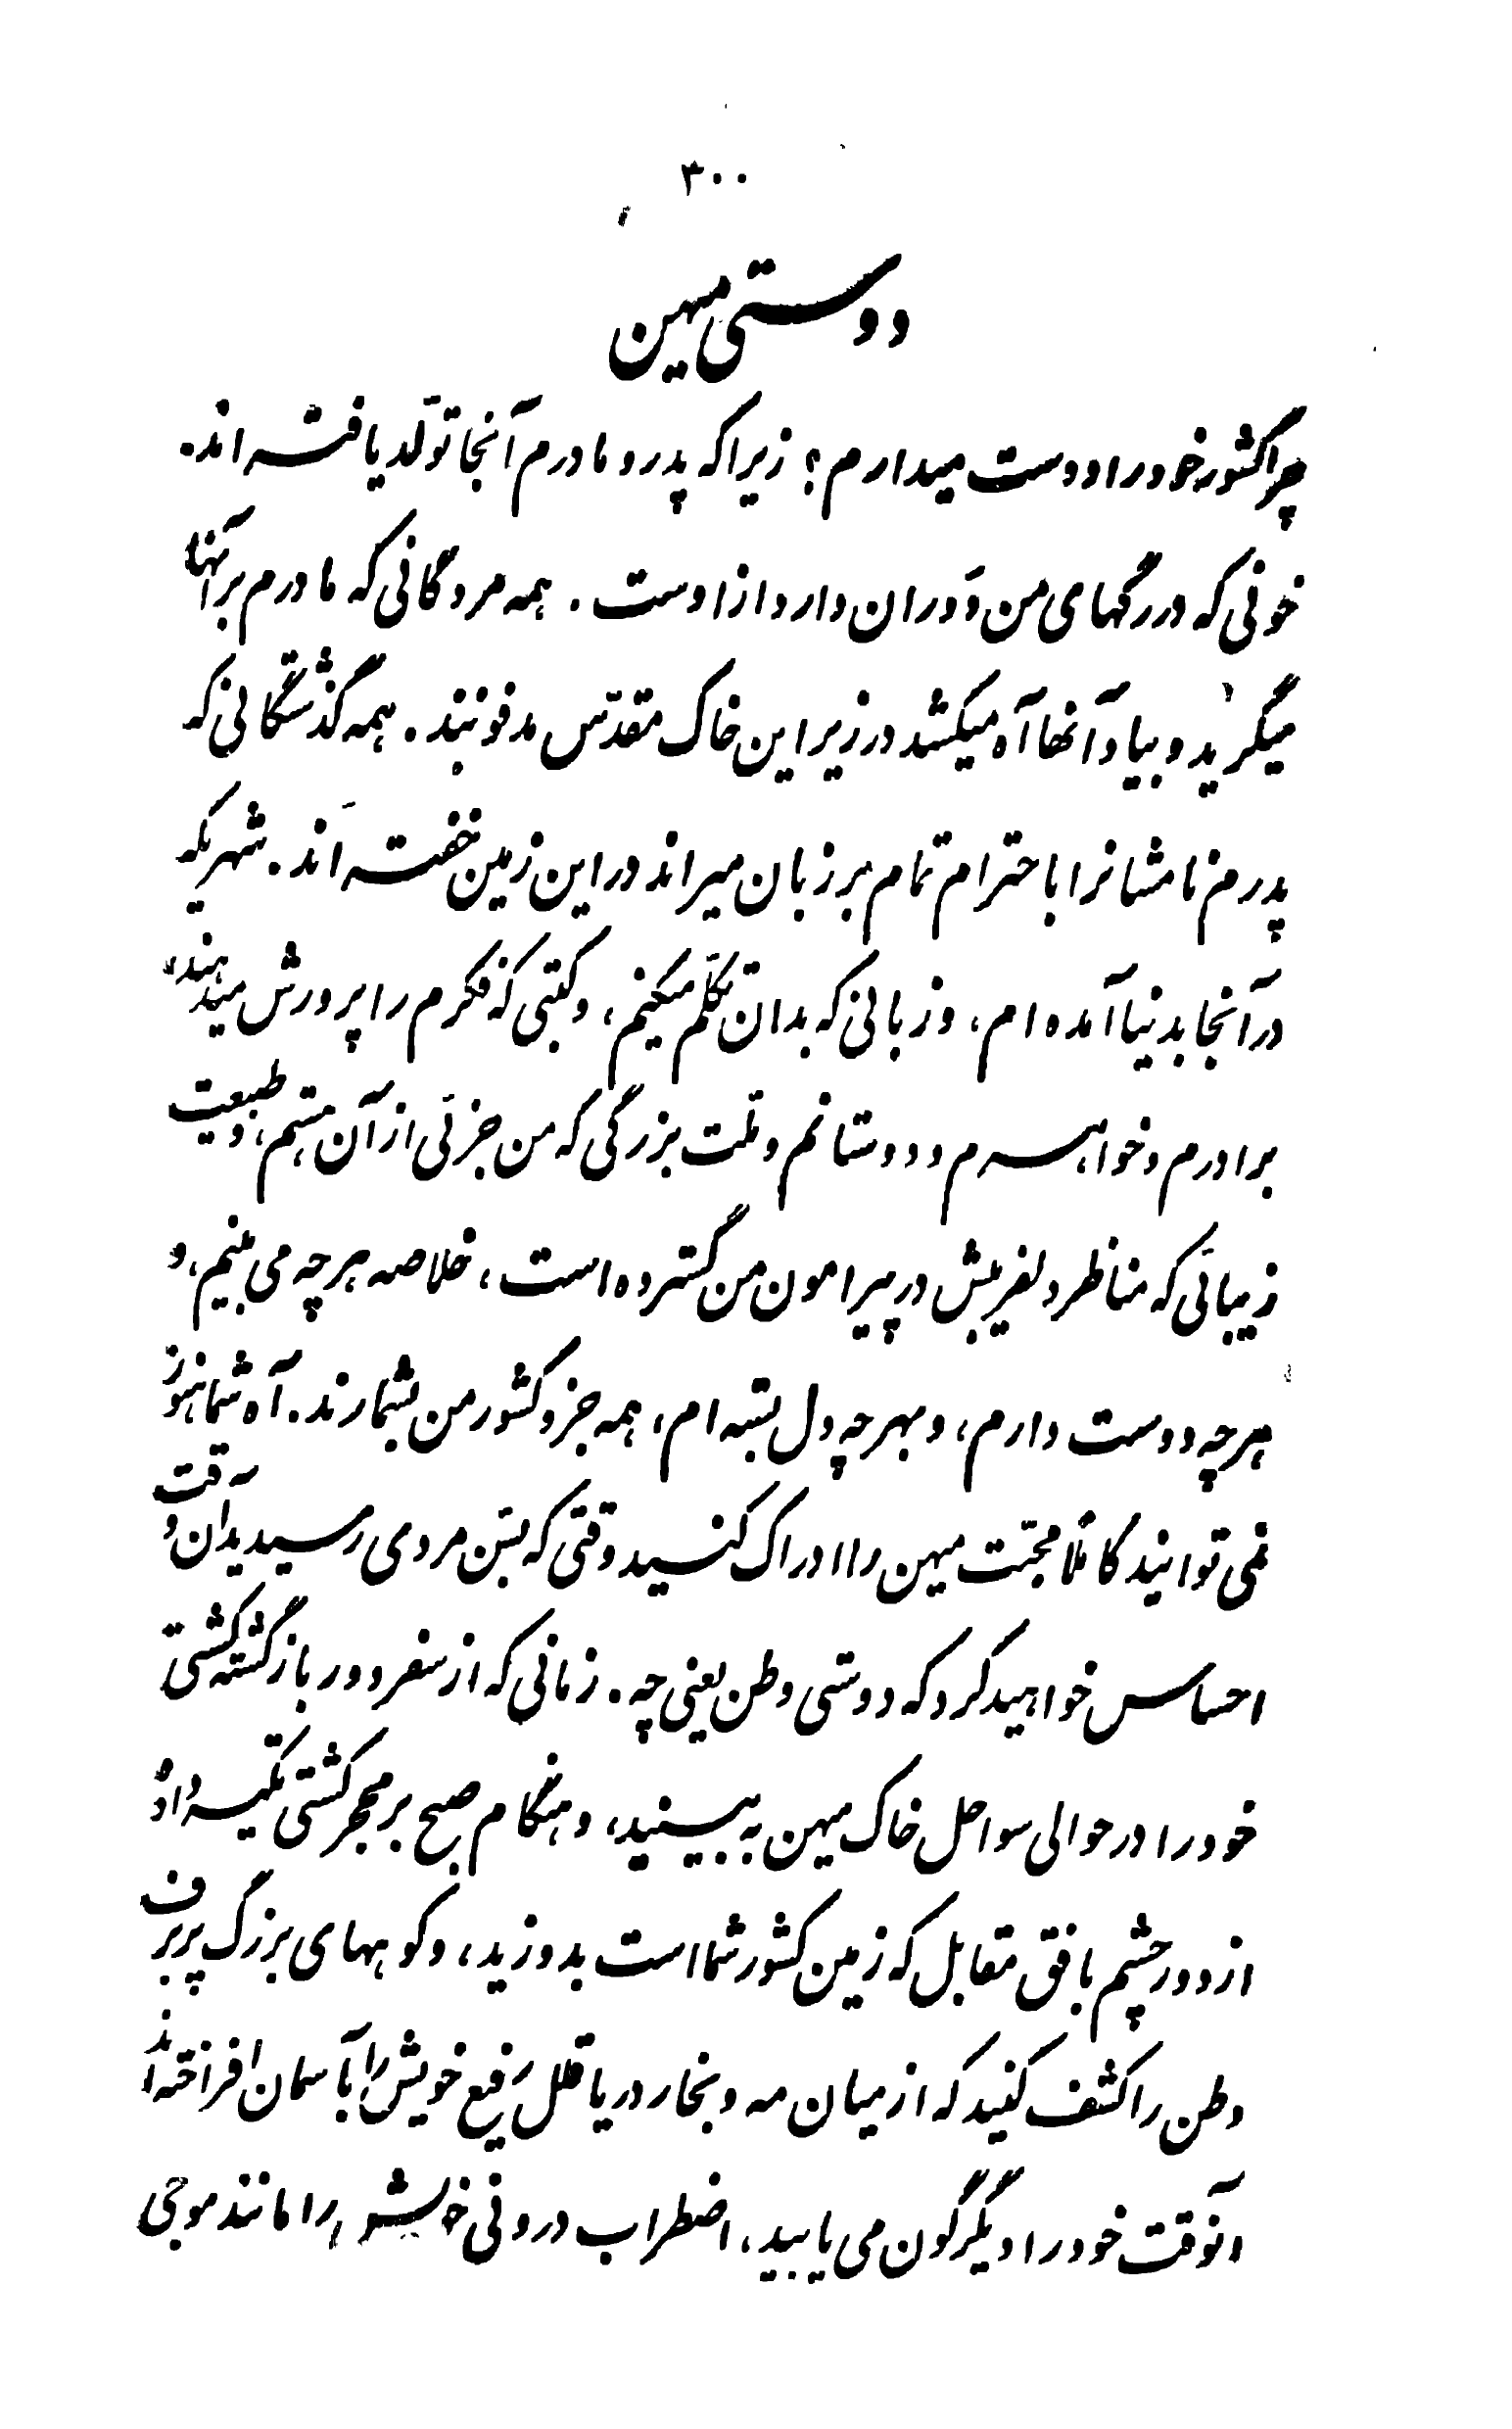 ۳۰۰
دوستی میهن
چرا کشور خود را دوست میدارم؟ زیرا که پدر و مادرم آنجا تولّد یافته اند.
خونی که در رگهای من دَوران دارد از اوست. همه مردگانی که مادرم بر آنها
میگرید و بیاد آنها آه میکشد در زیر این خاک مقدّس مدفونند. همه گذشتگانی که
پدرم نامشانرا با احترام تمام بر زبان میراند در این زمین خفته اند. شهریکه
در آنجا بدنیا آمده ام، و زبانی که بدان تکلّم میکنم، و کتبی که فکرم را پرورش میدهند،
برادرم و خواهرم و دوستانم و ملّت بزرگی که من جزئی از آن هستم، و طبیعت
زیبائی که مناظر دلفریبش در پیرامون من گسترده است، خلاصه هرچه می بینم، و
هرچه دوست دارم، و بهرچه دل بسته ام، همه جزو کشور من بشمارند. آه شما هنوز
نمی توانید کاملاً محبّت میهن را ادراک کنید وقتی که بسنّ مردی رسیدید آن وقت
احساس خواهید کرد که دوستی وطن یعنی چه. زمانی که از سفر دور بازگشته کشتی
خود را در حوالی سواحل خاک میهن به بینید، و هنگام صبح بر محجر کشتی تکیه داده
از دور چشم بافق مقابل که زمین کشور شما است بدوزید، و کوههای بزرگ پر برف
وطن را کشف کنید که از میان مه و بخار دریا قلل رفیع خویش را بآسمان افراخته اند
آنوقت خود را دیگرگون می یابید، اضطراب درونی خویش را مانند موجی